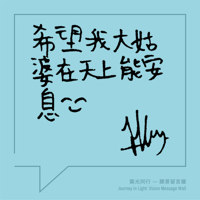 希望我大姑
婆在天上能安
息
聚光同行 — 顯影留言牆
Journey in Light: Vision Message Wall